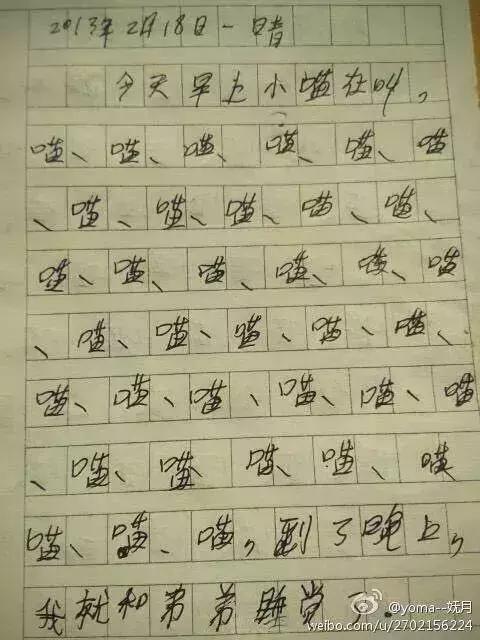 2013年2月18日一日晴
今天早上小喵在叫，
喵、喵、喵、喵、喵、喵
、喵、喵、喵、喵、喵、
喵、喵、喵、喵、喵、喵
、喵、喵、喵、喵、喵、
喵、喵、喵、喵、喵、喵
、喵、喵喵、喵、喵
喵、喵、喵，到了晚上，
我就和弟弟睡觉了.
@yoma--妩月
weibo.com/u/2702156224